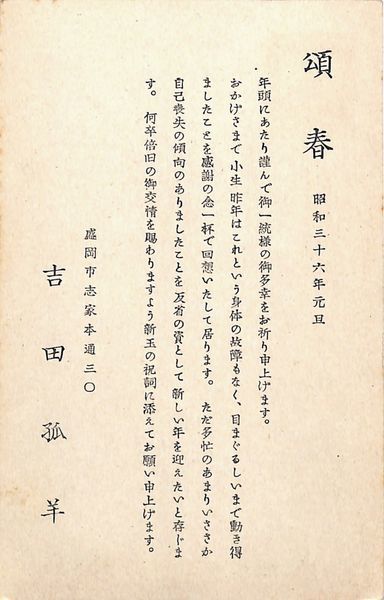 頌春
昭和三十六年元旦
年頭にあたり謹んで御一統様の御多幸をお祈り申上げます。
おかげさまで小生昨年はこれという身体の故障もなく、目まぐるしいまで動き得
ましたことを感謝の念一杯で回想いたして居ります。ただ多忙のあまりいささか
自己喪失の傾向のありましたことを反省の資として新しい年を迎えたいと存じま
す。何卒倍旧の御交情を賜わりますよう新玉の祝詞に添えてお願い申上げます。
盛岡市志家本通三〇
吉田孤羊